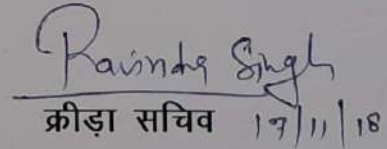 Ravindra Singh
क्रीड़ा सचिव 17/11/18